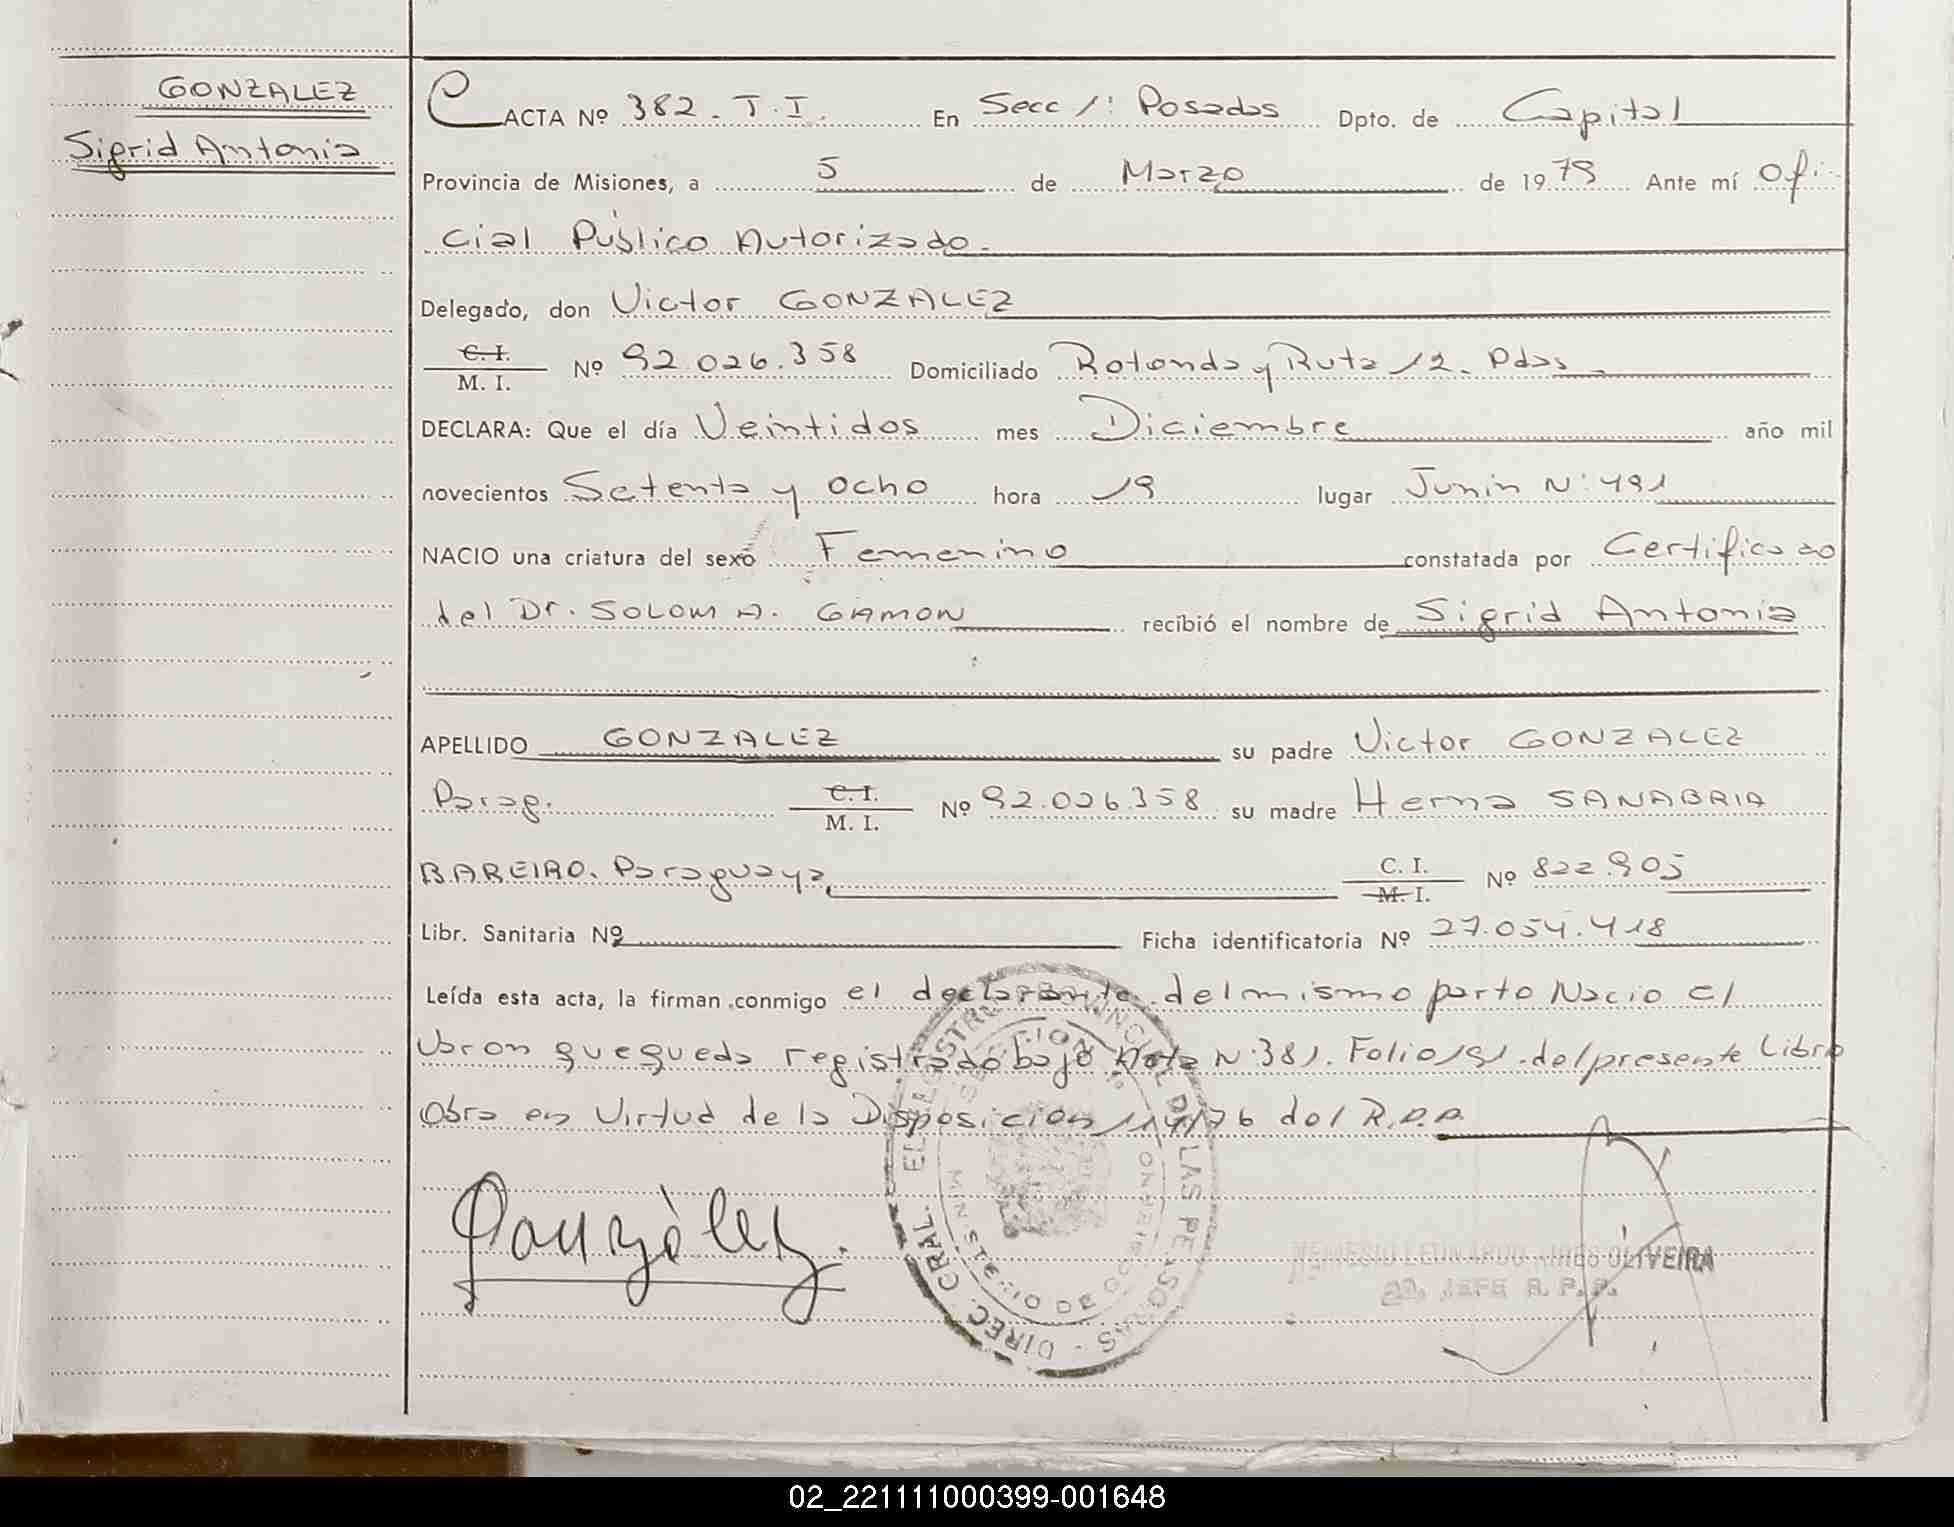 GONZALEZ
Sigrid Antonia
ACTA Nº 382. T.I. En Secc 1: Posadas Dpto. de Capital
Provincia de Misiones, a 5 de Marzo de 1979 Ante mí Ofi-
cial Público Autorizado.
Delegado, don Victor GONZALEZ
C. I. / M. I. Nº 92.026.358 Domiciliado Rotonda y Ruta 12. Pdas.
DECLARA: Que el día Veintidos mes Diciembre año mil
novecientos Setenta y Ocho hora 19 lugar Junin N: 491
NACIO una criatura del sexo Femenino constatada por Certificado
del Dr. SOLOM A. GAMON recibió el nombre de Sigrid Antonia
APELLIDO GONZALEZ su padre Victor GONZALEZ
Parag. C. I. / M. I. Nº 92.026.358 su madre Herma SANABRIA
BAREIRO. Paraguaya, C. I. / M. I. Nº 822.905
Libr. Sanitaria Nº Ficha identificatoria Nº 27.054.418
Leída esta acta, la firman conmigo el declarante. del mismo parto Nacio el
Varon que queda registrado bajo Acta N: 381. Folio 191. del presente Libro
Obra en Virtud de la Disposicion 114/76 del R.P.P.
González.
DIREC. GRAL. EL REGISTRO PROVINCIAL DE LAS PERSONAS
MINISTERIO DE GOBIERNO
OLIVEIRA
JEFE R. P. P.
02_221111000399-001648